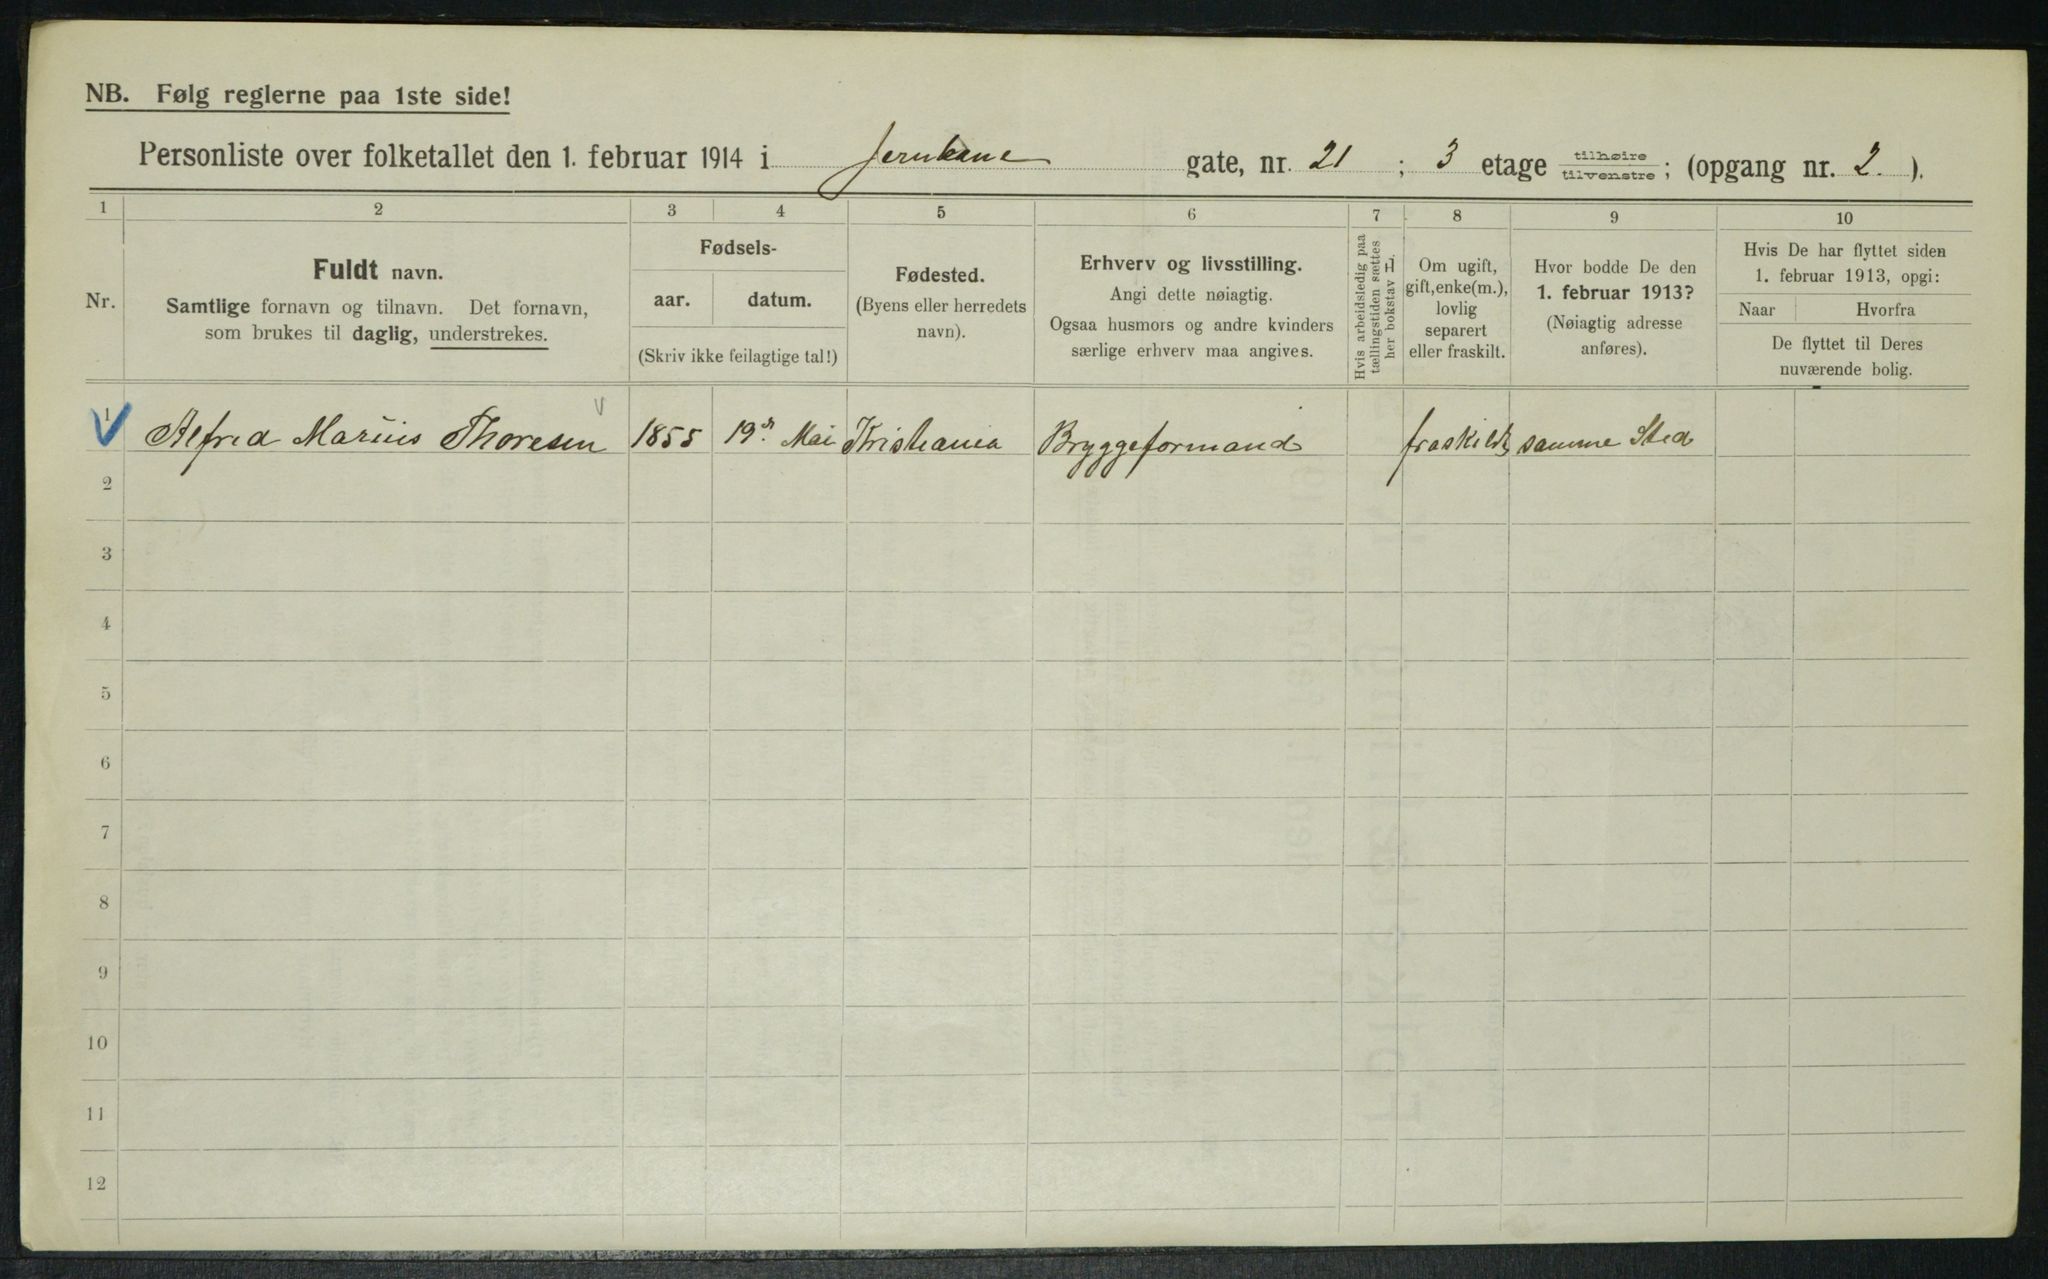 NB. Følg reglerne paa 1ste side!
Personliste over folketallet den 1. februar 1914 i Jernbane gate, nr. 21 ; 3 etage tilhøire tilvenstre ; (opgang nr. 2. ).
1 2 3 4 5 6 7 8 9 10
Nr.
Fuldt navn.
Samtlige fornavn og tilnavn. Det fornavn,
som brukes til daglig, understrekes.
Fødsels-
aar. datum.
(Skriv ikke feilagtige tal!)
Fødested.
(Byens eller herredets
navn).
Erhverv og livsstilling.
Angi dette nøiagtig.
Ogsaa husmors og andre kvinders
særlige erhverv maa angives.
Hvis arbeidsledig paa
tællingstiden sættes
her bokstav L.
Om ugift,
gift, enke(m.),
lovlig
separert
eller fraskilt.
Hvor bodde De den
1. februar 1913?
(Nøiagtig adresse
anføres).
Hvis De har flyttet siden
1. februar 1913, opgi:
Naar Hvorfra
De flyttet til Deres
nuværende bolig.
1 Alfred Marius Thoresen 1855 19de Mai Kristiania Bryggeformand fraskildt samme Sted
2
3
4
5
6
7
8
9
10
11
12